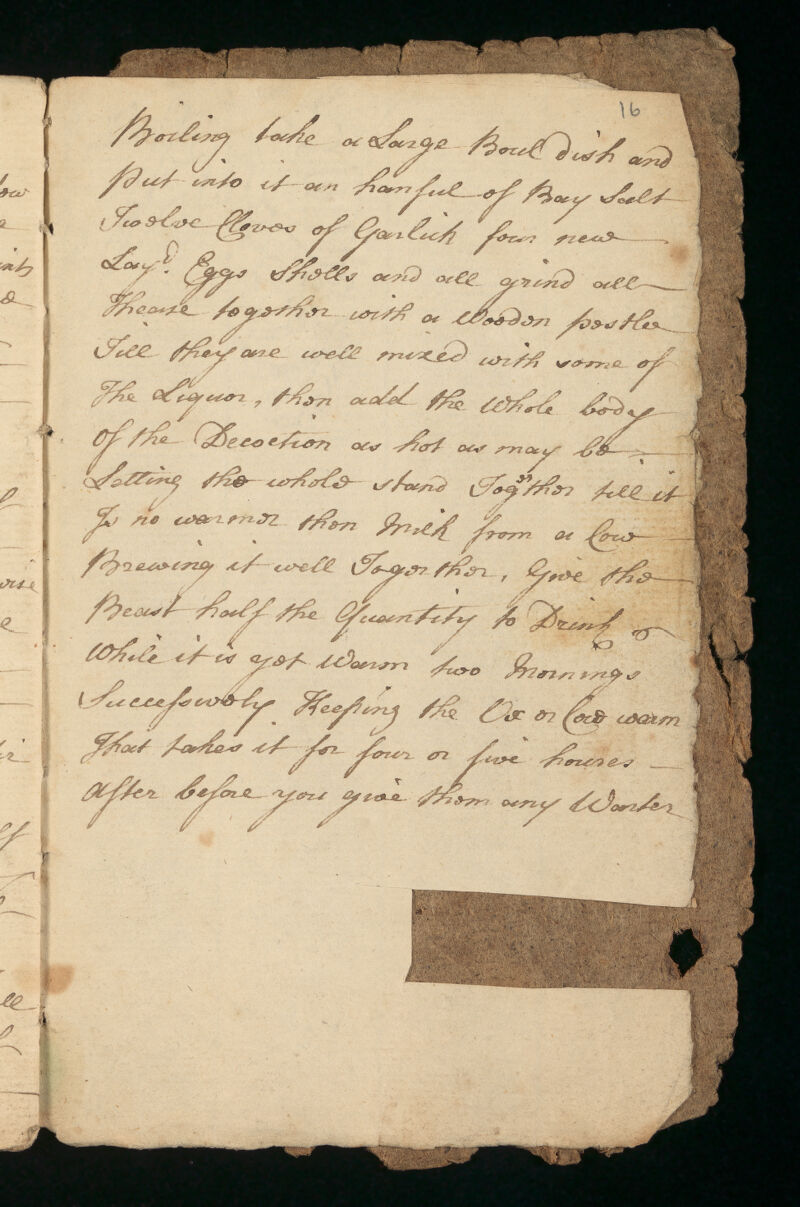 16
Boiling take a Large Bowl dish and
Put into it an hanful of Bay Salt
Twelve Cloves of Garlick four new
Layd. Eggs Shells and all grind all
Thease together with a Wooden pestle
Till they are well mixed with some of
The Liquor, then add the Whole body
Of the Decoction as hot as may be
Letting the whole stand Together till it
Is no warmer then Milk from a Cow
Brewing it well Together, Give the
Beast half the Quantity to Drink
While it is yet Warm two Mornings
Successively Keeping the Ox or Cow warm
That takes it for four or five houres
After before you give them any Warter